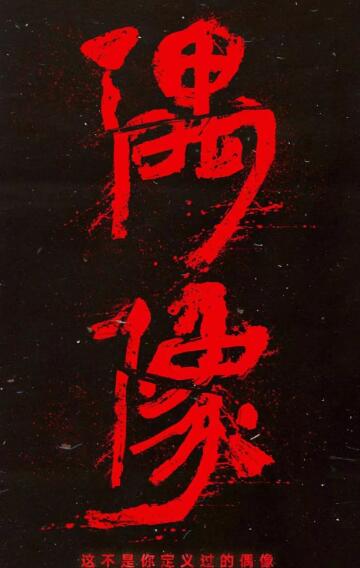 偶
像
这不是你定义过的偶像